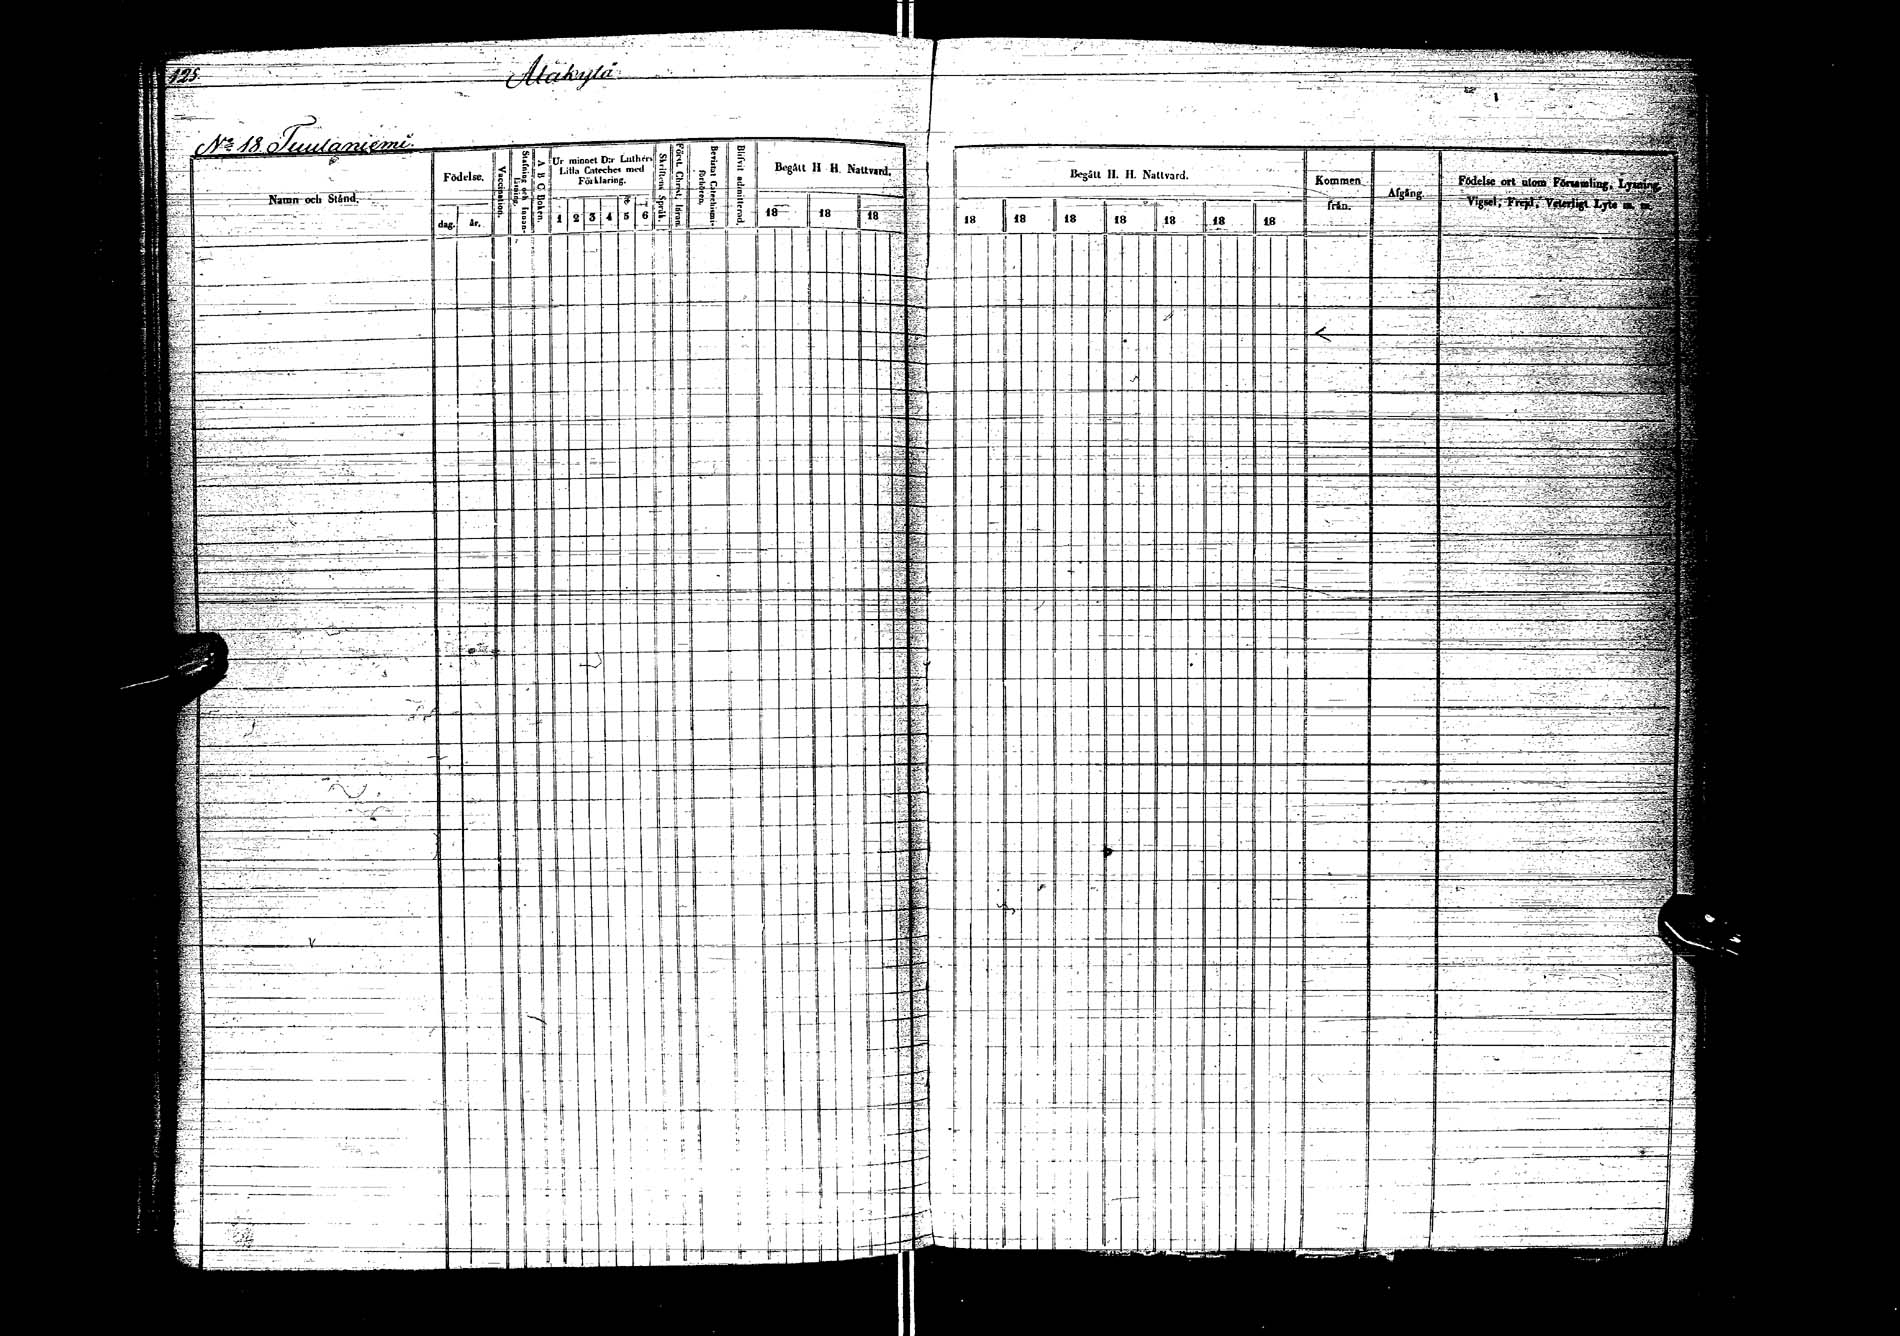 125.
Alakylä
No 18. Tuulaniemi.
Namn och Stånd.
Födelse.
dag.
år.
Vaccination.
Stafning och Innan-
Läsning.
A B C Boken.
Ur minnet D:r Luthers
Lilla Cateches med
Förklaring.
1 2 3 4 5 6
Skriftens Språk.
Först. Christ. läran.
Bevistat Catechismi-
förhören.
Blifvit admitterad.
Begått H. H. Nattvard.
18 18 18
Begått H. H. Nattvard.
18 18 18 18 18 18 18
Kommen
från.
Afgång.
Födelse ort utom Församling, Lysning,
Vigsel, Frejd, Veterligt Lyte m. m.